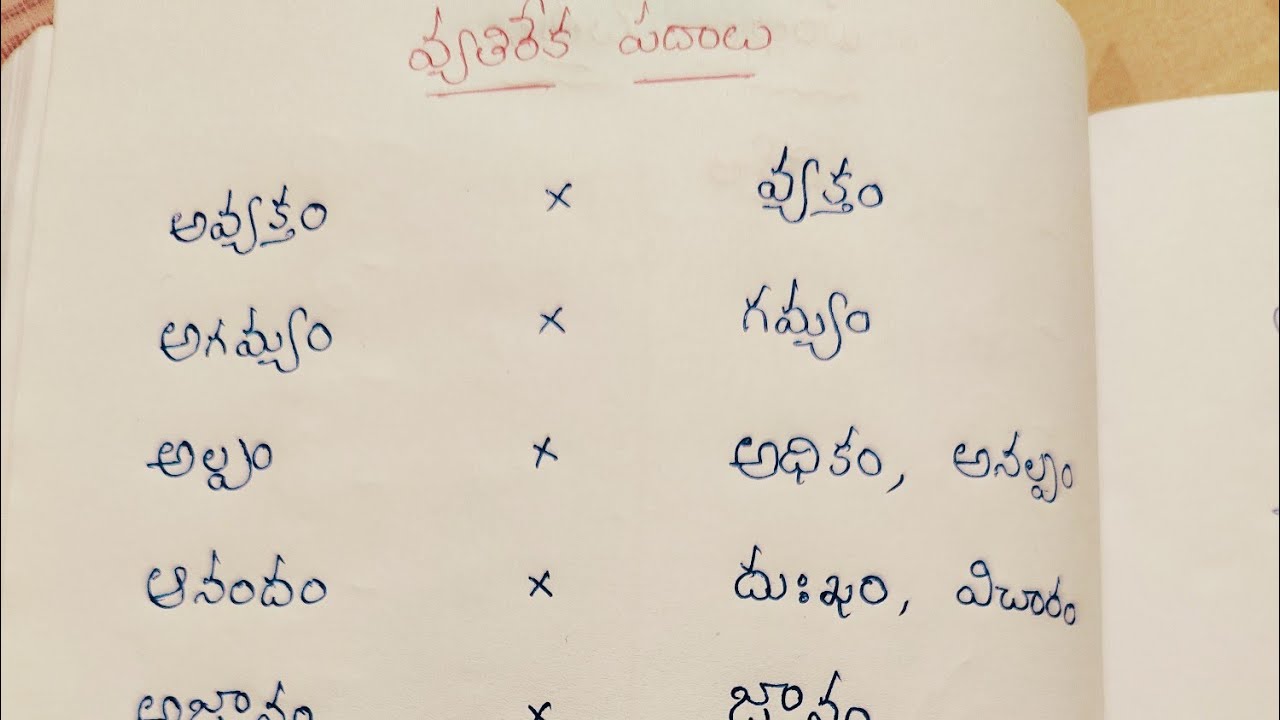 వ్యతిరేక పదాలు
అవ్యక్తం × వ్యక్తం
అగమ్యం × గమ్యం
అల్పం × అధికం, అనల్పం
ఆనందం × దుఃఖం, విచారం
అజ్ఞానం × జ్ఞానం